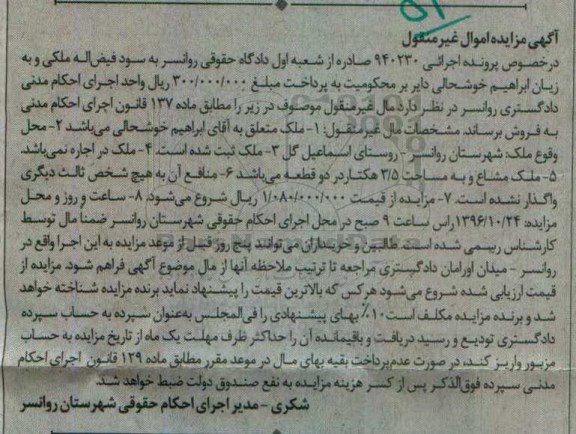 ۵۱
آگهی مزایده اموال غیرمنقول
درخصوص پرونده اجرائی ۹۴۰۲۳۰ صادره از شعبه اول دادگاه حقوقی روانسر به سود فیض‌اله ملکی و به
زیان ابراهیم خوشحالی دایر بر محکومیت به پرداخت مبلغ ۳۰۰/۰۰۰/۰۰۰ ریال واحد اجرای احکام مدنی
دادگستری روانسر در نظر دارد مال غیرمنقول موصوف در زیر را مطابق ماده ۱۳۷ قانون اجرای احکام مدنی
به فروش برساند. مشخصات مال غیرمنقول: ۱- ملک متعلق به آقای ابراهیم خوشحالی می‌باشد ۲- محل
وقوع ملک: شهرستان روانسر - روستای اسماعیل گل ۳- ملک ثبت شده است. ۴- ملک در اجاره نمی‌باشد.
۵- ملک مشاع و به مساحت ۳/۵ هکتار در دو قطعه می‌باشد ۶- منافع آن به هیچ شخص ثالث دیگری
واگذار نشده است. ۷- مزایده از قیمت ۱/۰۸۰/۰۰۰/۰۰۰ ریال شروع می‌شود. ۸- ساعت و روز و محل
مزایده: ۱۳۹۶/۱۰/۲۴ راس ساعت ۹ صبح در محل اجرای احکام حقوقی شهرستان روانسر ضمنا مال توسط
کارشناس رسمی شده است. طالبین و خریداران می‌توانند پنج روز قبل از موعد مزایده به این اجرا واقع در
روانسر - میدان اورامان دادگستری مراجعه تا ترتیب ملاحظه آنها از مال موضوع آگهی فراهم شود. مزایده از
قیمت ارزیابی شده شروع می‌شود هر کس که بالاترین قیمت را پیشنهاد نماید برنده مزایده شناخته خواهد
شد و برنده مزایده مکلف است ۱۰٪ بهای پیشنهادی را فی‌المجلس به‌عنوان سپرده به حساب سپرده
دادگستری تودیع و رسید دریافت و باقیمانده آن را حداکثر ظرف مهلت یک ماه از تاریخ مزایده به حساب
مزبور واریز کند، در صورت عدم‌پرداخت بقیه بهای مال در موعد مقرر مطابق ماده ۱۲۹ قانون اجرای احکام
مدنی سپرده فوق‌الذکر پس از کسر هزینه مزایده به نفع صندوق دولت ضبط خواهد شد.
شکری - مدیر اجرای احکام حقوقی شهرستان روانسر